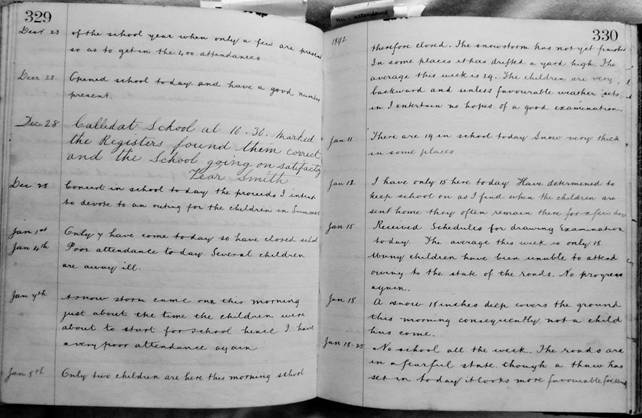 329
Decr 23 of the school year when only a few are present
so as to get in the 400 attendances
Decr 28 Opened school today and have a good number
present.
Dec 28 Called at School at 10-30. Marked
the Registers found them correct
and the School going on satisfactory
Smith
Dec 28 Concert in school today the proceeds I intend
to devote to an outing for the children in Summer
Jan 1st Only 7 have come today so have closed school
Jan 4th Poor attendance today Several children
are away ill.
Jan 7th A snow storm came on this morning
just about the time the children were
about to start for school hence I have
a very poor attendance again
Jan 8th Only two children are here this morning school
330
1892
therefore closed. The snowstorm has not yet finished
In some places it has drifted a yard high. The
average this week is 29. The children are very
backward and unless favourable weather sets
in I entertain no hopes of a good examination.
Jan 11 There are 19 in school today Snow very thick
in some places
Jan 12 I have only 15 here today Have determined to
keep school on as I find when the children are
sent home they often remain there for a few days
Jan 15 Received Schedules for drawing Examination
today. The average this week is only 15
Many children have been unable to attend
owing to the state of the roads. No progress
again.
Jan 18 A snow 18 inches deep covers the ground
this morning consequently not a child
has come.
Jan 18-25 No school all the week. The roads are
in a fearful state though a thaw has
set in today it looks more favourable for